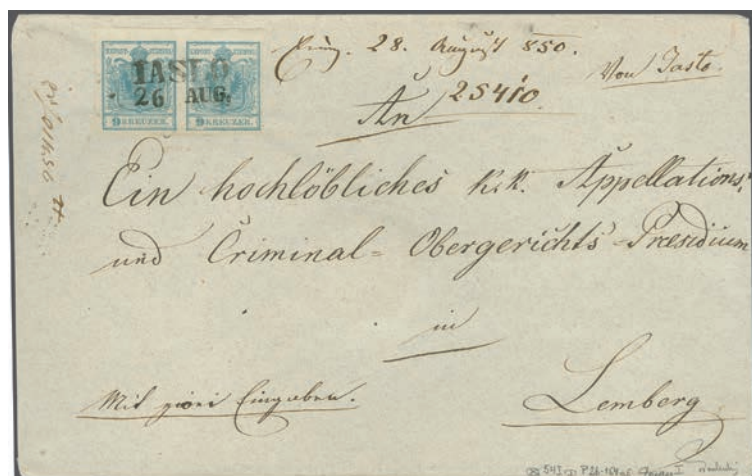 IASŁO
26 AUG.
9 KREUZER. 9 KREUZER.
28. August 850.
Von Jasło.
25410.
An
Ein hochlöbliches k.k. Appellations-
und Criminal-Obergerichts-Præsidium
in
Lemberg
Mit zwei Eingaben.